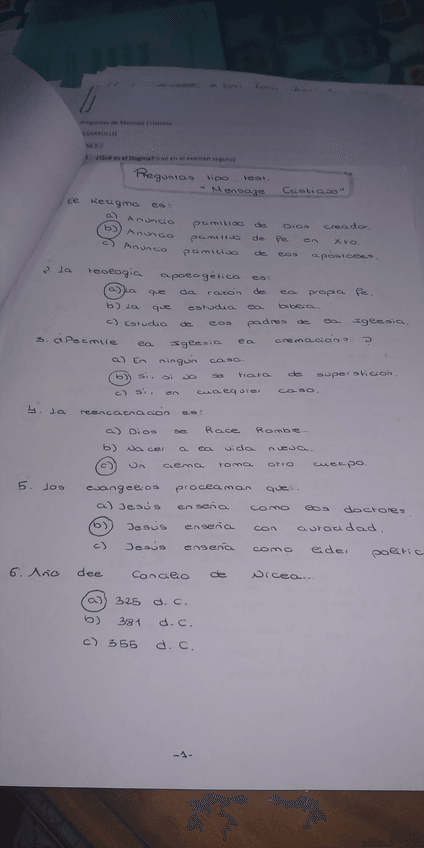 Preguntas de Mensaje Cristiano
DESARROLLO
¿Qué es el Dogma? (cae en el examen seguro)
Preguntas tipo test.
"Mensaje Cristiano"
El Kerigma es:
a) Anuncio primitivo de Dios creador.
b) Anuncio primitivo de Fe en Xto.
c) Anuncio primitivo de los apóstoles.
2. La teología apologética es:
a) la que da razón de la propia fe.
b) la que estudia la biblia.
c) Estudio de los padres de la Iglesia.
3. ¿Permite la Iglesia la cremación?
a) En ningún caso.
b) Sí, si no se trata de superstición.
c) Sí, en cualquier caso.
4. La reencarnación es:
a) Dios se hace hombre.
b) Nacer a la vida nueva.
c) Un alma toma otro cuerpo.
5. Los evangelios proclaman que..
a) Jesús enseña como los doctores.
b) Jesús enseña con autoridad.
c) Jesús enseña como líder polític
6. Año del Concilio de Nicea...
a) 325 d.C.
b) 381 d.C.
c) 355 d.C.
-1-